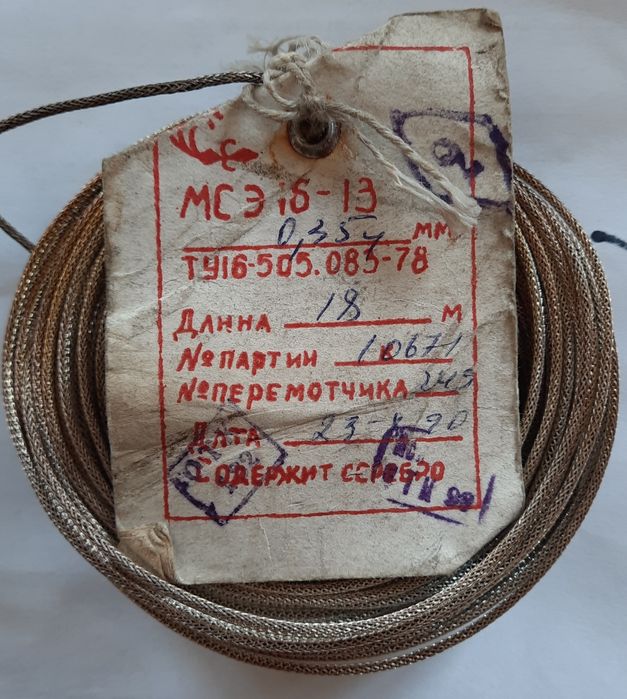 МСЭ 16-13
0,35 мм
ТУ16-505.083-78
Длина 18 м
№ партии 10671
№ перемотчика 245
Дата 23-X-90
Содержит серебро